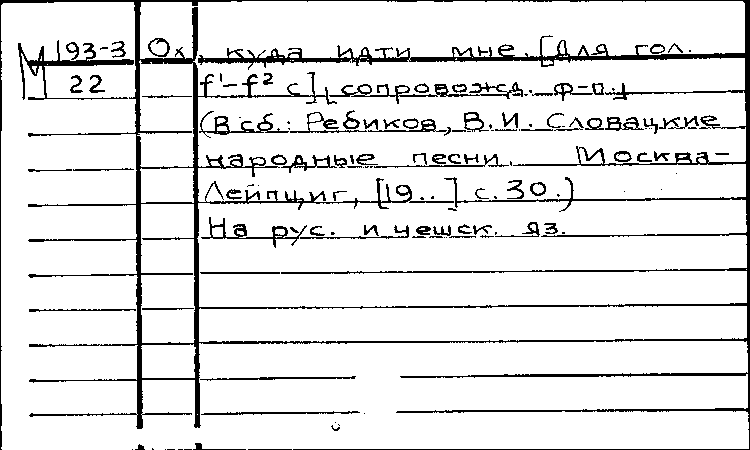 М 193-3 Ох, куда идти мне. [Для гол.
22 f¹-f² с] сопровожд. ф-п.
(В сб.: Ребиков, В. И. Словацкие
народные песни. Москва-
Лейпциг, [19..] с. 30.)
На рус. и чешск. яз.